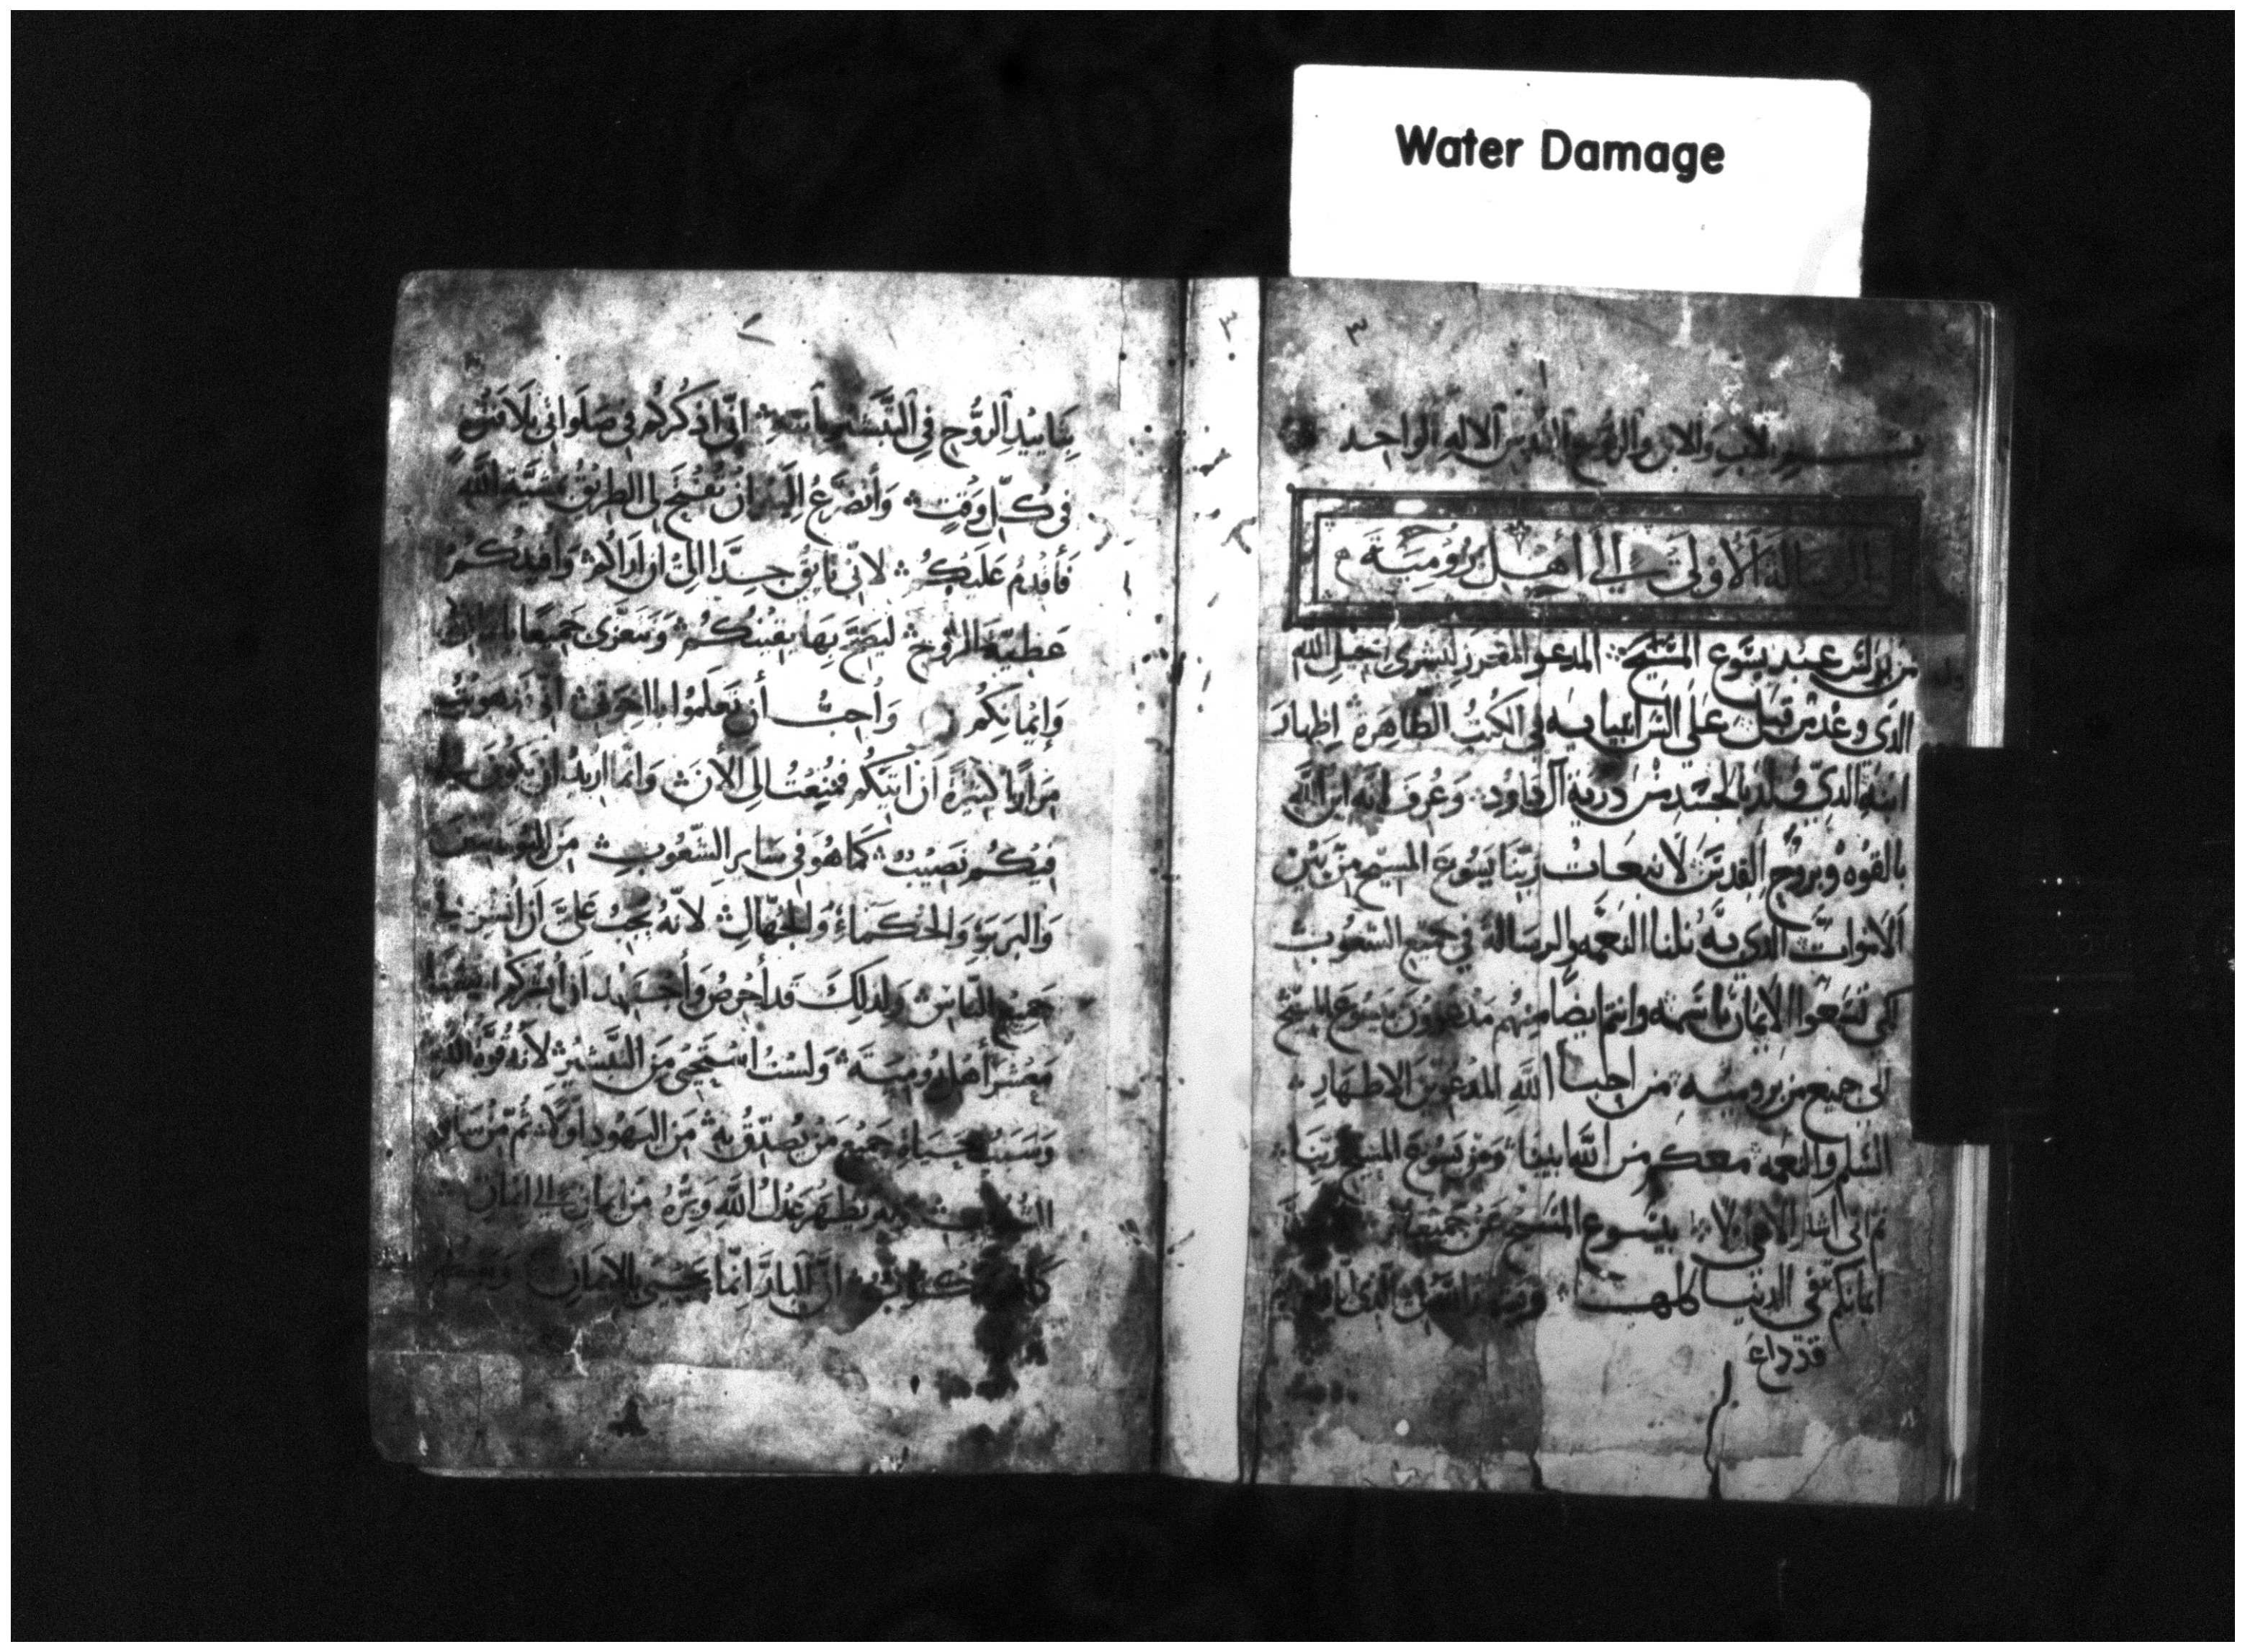 Water Damage
٣
٣
بسم الاب والابن والروح القدس الاله الواحد
الرسالة الأولى الى أهل رومية
من بولس عبد يسوع المسيح المدعو المفرز لبشرى انجيل الله
الذى وعد من قبل على السن انبيايه فى الكتب الطاهرة اظهار
ابنه الذى ولد بالجسد من ذرية آل داود وعرف انه ابن الله
بالقوه وبروح القدس لانبعاث ربنا يسوع المسيح من بين
الاموات الذى به نلنا النعمه والرساله في جميع الشعوب
كى تسمعوا الايمان باسمه وانتم ايضا منهم مدعوون بيسوع المسيح
الى جميع من برومية من احبا الله المدعوين الاطهار
السلم والنعمه معكم من الله ابينا ومن يسوع المسيح ربنا
ثم انى اشكر الاهى بيسوع المسيح عن جميعكم
ايمانكم في الدنيا كلها
قد ذاع
بتاييد الروح في التبشير بابنه انى اذكركم في صلواتى بلا فتور
في كل وقت وأتضرع اليه ان تفتح لى الطريق بمشية الله
فأقدم عليكم لانى تايق جدا الى ان اراكم وافيدكم
عطية الروح ليصح بها يقينكم ونتعزى جميعا
وايمانكم وأحب أن تعلموا يا اخوتى انى
مرارا كثيرة ان اتيكم فمنعت الى الأن وانما اريد ان يكون لى
فيكم نصيب كما هو في ساير الشعوب من اليونانيين
والبربر والحكماء والجهال لانه يجب على ان ابشر
جميع الناس ولذلك قد أحرص وأجتهد ان أبشركم ايضا
معشر أهل رومية ولست استحيي من التبشير لانه قوة الله
وسبب حياة جميع من يصدق به من اليهود اولا ثم من ساير
الشعوب وبه يظهر عدل الله وبره من ايمان الى ايمان
كما هو مكتوب ان البار انما يحيى بالايمان